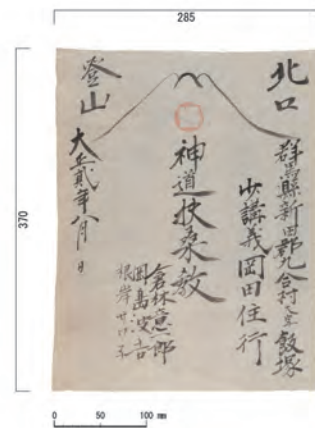 285
370
北口
群馬縣新田郡九合村大字飯塚
少講義岡田住行
神道扶桑教
倉林意一郎
岡島 吉
根岸
登山
大正貳年八月 日
0 50 100 mm